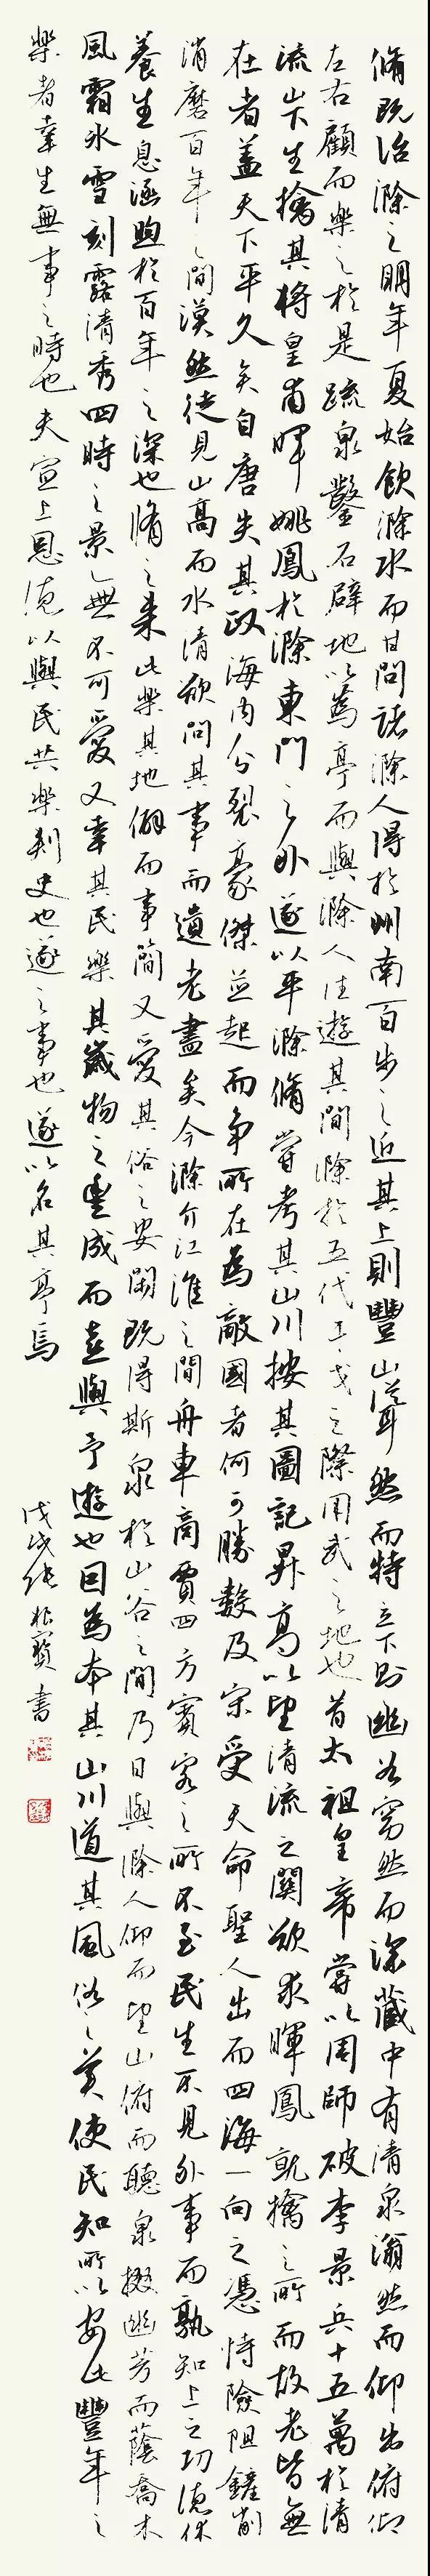 脩既治滁之明年夏始飲滁水而甘問諸滁人得於州南百步之近其上則豐山聳然而特立下則幽谷窈然而深藏中有清泉滃然而仰出俯仰
左右顧而樂之於是疏泉鑿石辟地以為亭而與滁人往遊其間滁於五代干戈之際用武之地也昔太祖皇帝嘗以周師破李景兵十五萬於清
流山下生擒其將皇甫暉姚鳳於滁東門之外遂以平滁脩嘗考其山川按其圖記昇高以望清流之關欲求暉鳳就擒之所而故老皆無
在者蓋天下平久矣自唐失其政海內分裂豪傑並起而爭所在為敵國者何可勝數及宋受天命聖人出而四海一向之憑恃險阻鏟削
消磨百年之間漠然徒見山高而水清欲問其事而遺老盡矣今滁介江淮之間舟車商賈四方賓客之所不至民生不見外事而孰知上之功德休
養生息涵煦於百年之深也脩之來此樂其地僻而事簡又愛其俗之安閑既得斯泉於山谷之間乃日與滁人仰而望山俯而聽泉掇幽芳而蔭喬木
風霜冰雪刻露清秀四時之景無不可愛又幸其民樂其歲物之豐成而喜與予遊也因為本其山川道其風俗之美使民知所以安此豐年之
樂者幸生無事之時也夫宣上恩德以與民共樂刺史也遂之事也遂以名其亭焉
戊戌張根寶書